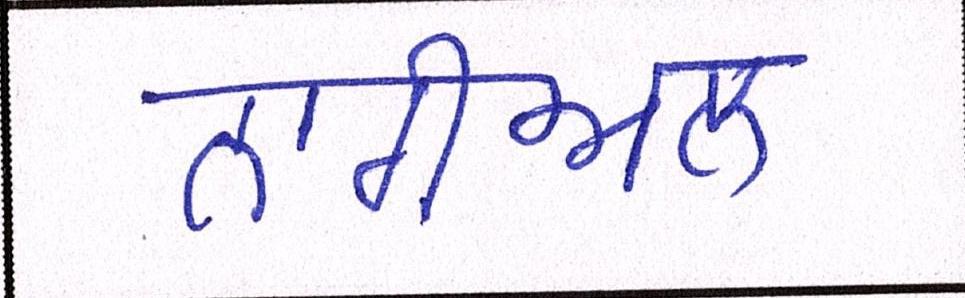 ਨਾਰੀਅਲ